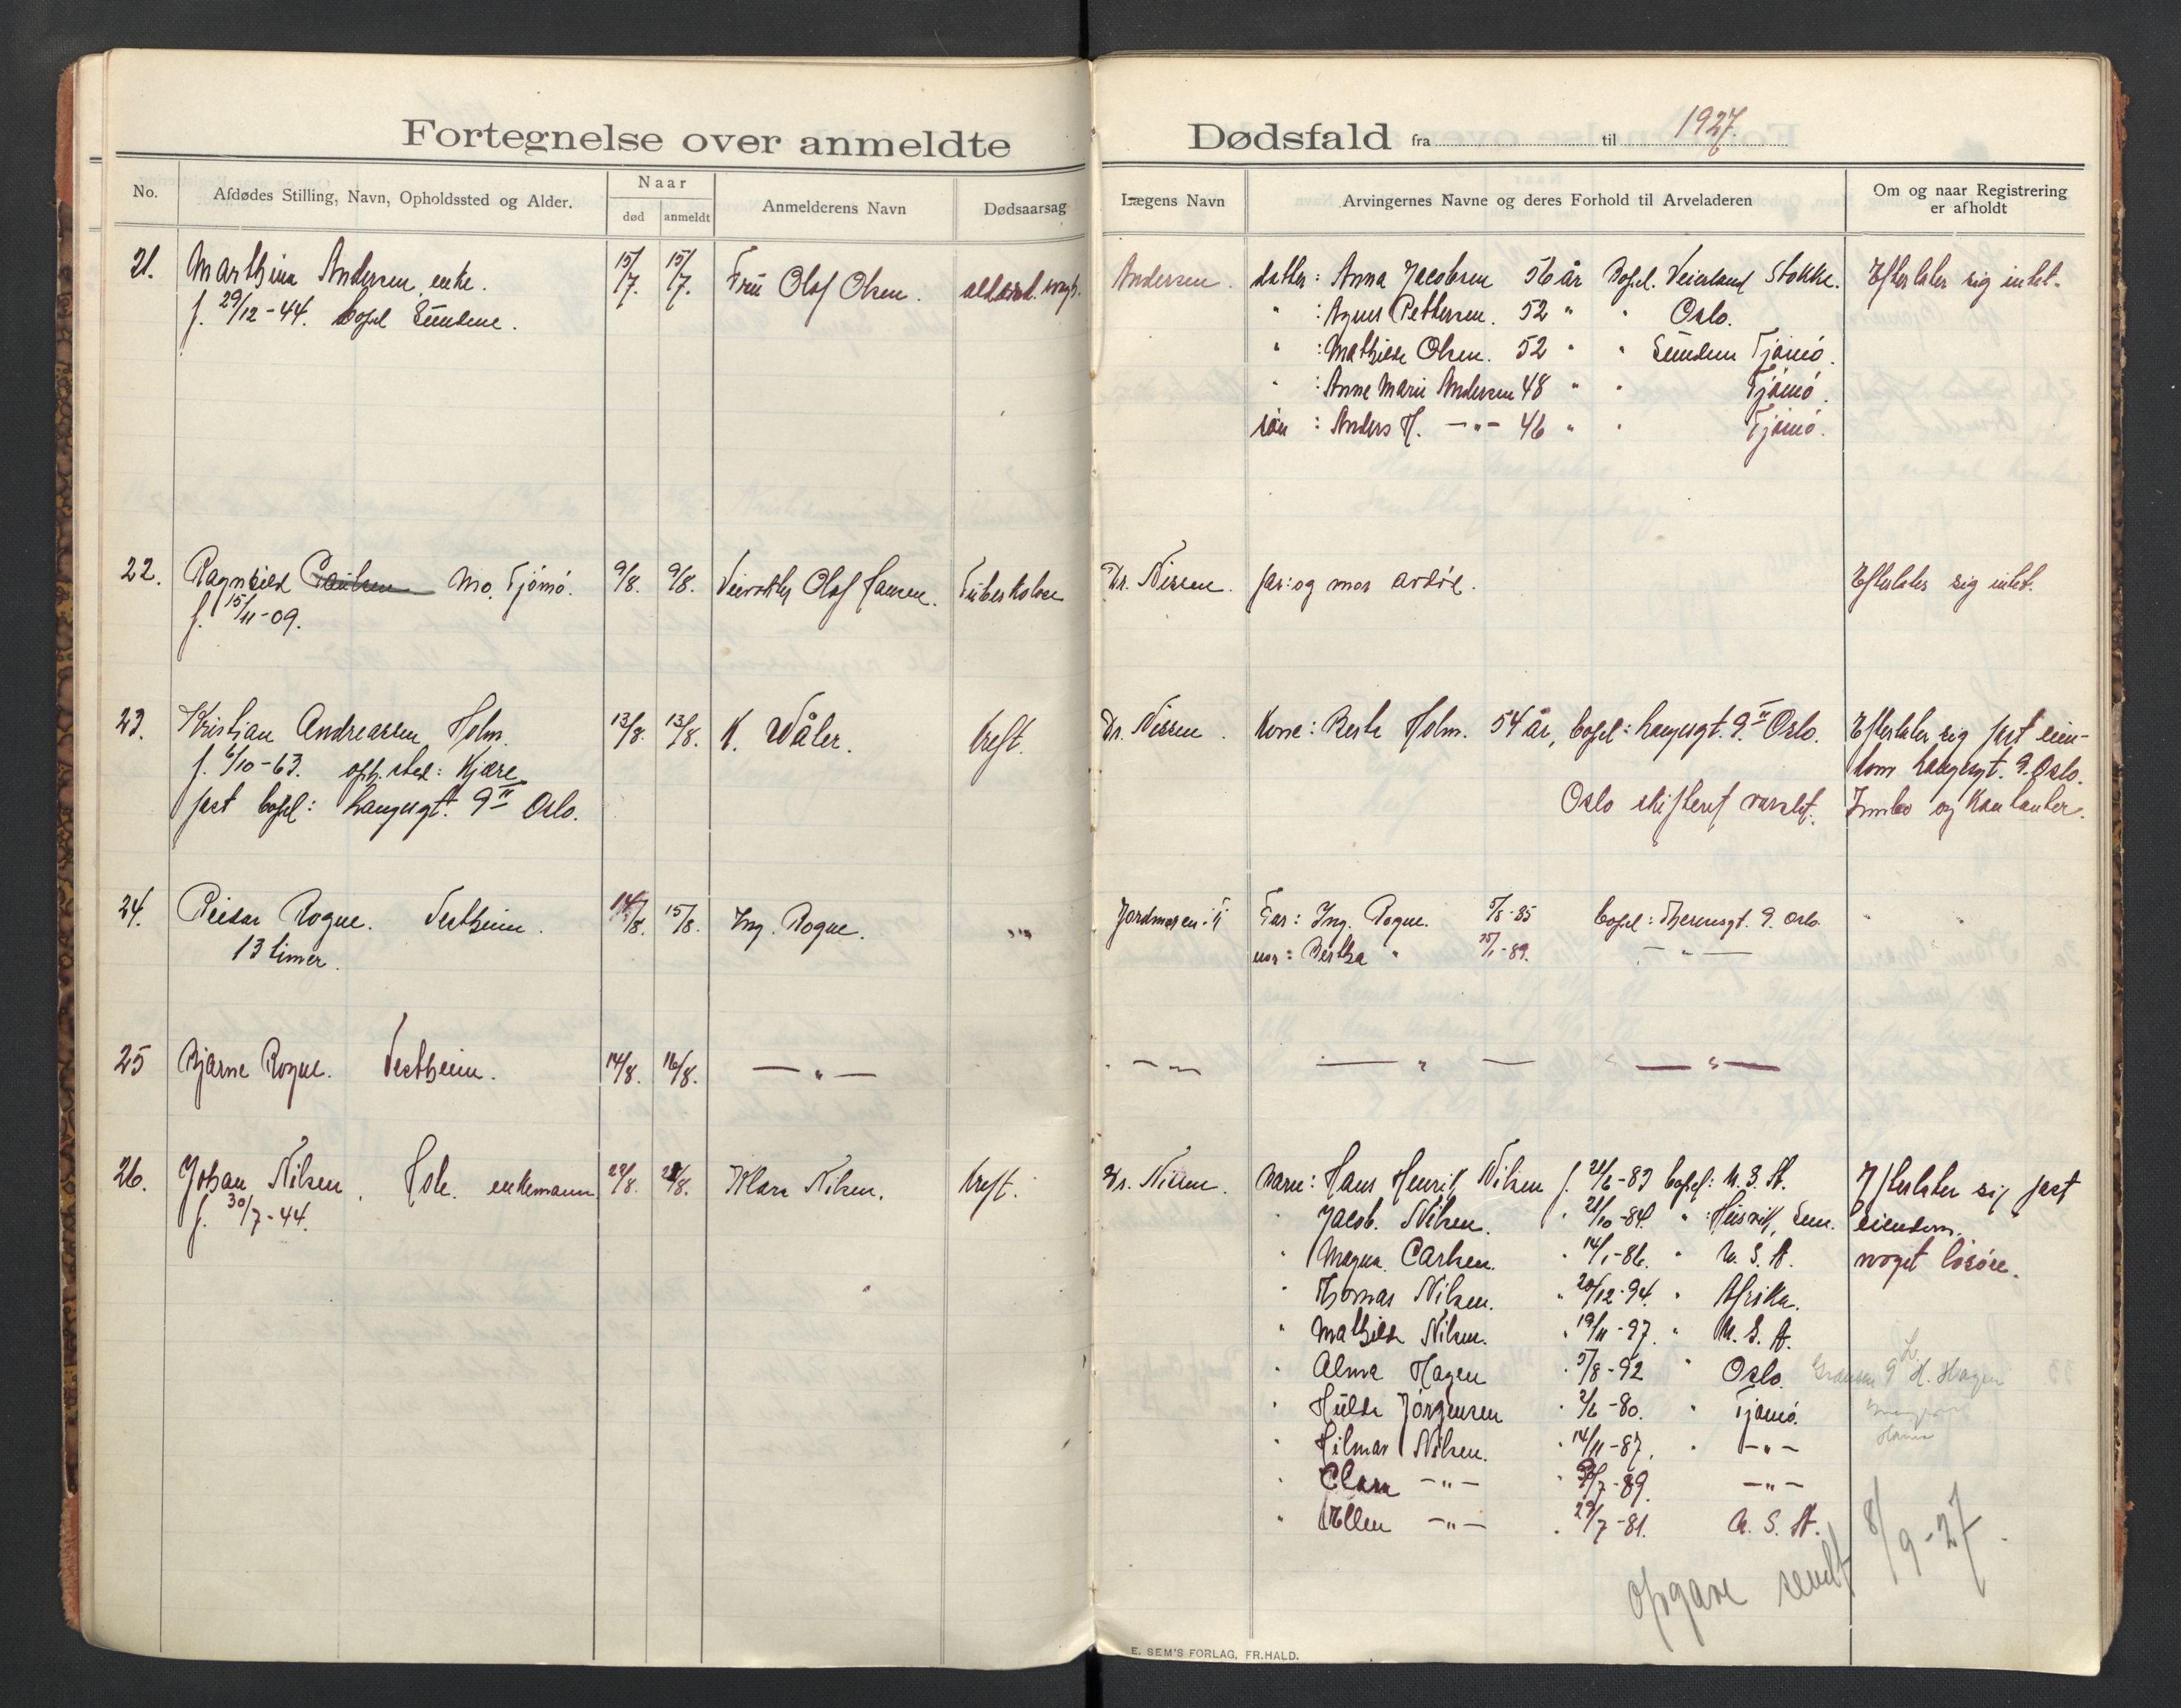 Fortegnelse over anmeldte Dødsfald fra til 1927.
No. Afdødes Stilling, Navn, Opholdssted og Alder. Naar død anmeldt Anmelderens Navn Dødsaarsag Lægens Navn Arvingernes Navne og deres Forhold til Arveladeren Om og naar Registrering er afholdt
21. Marthina Andersen enke. 15/7. 15/7. Frü Olaf Olsen. Andersen. datter: Anna Jacobsen 56 år Bopel. Veierland Stokke. Efterlater sig intet.
f. 29/12-44. bopel Sündene. " : Agnes Pettersen. 52 " " Oslo.
" : Mathilde Olsen. 52 " " Sündene Tjömö.
" : Anne Marie Andersen 48 " " Tjömö.
sön : Anders H. —"— 46 " " Tjömö.
22. Ragnhild Paulsen Mo, Tjömö. 9/8. 9/8. Veivokter Olaf Hansen. Tüberkolose Dr. Nissen. far: og mor avdöd. Efterlater sig intet.
f. 15/11-09.
23. Kristian Andreassen Holm. 13/8. 13/8. K. Wåler. kreft. Dr. Nissen. Kone: Berte Holm. 54 år, bopel: Langesgt. 9 II Oslo. Efterlater sig fast eien-
f. 6/10-63. oph. sted: Kjære dom Langesgt. 9. Oslo.
fast bopel: Langesgt. 9 II Oslo. Oslo skifteret varslet. Innbo og Kontanter.
24. Reidar Rogne. Vestheim. 14/8. 15/8. Ing. Rogne. " Jordmoren i Tj. Far: Ing. Rogne. 5/8-85 bopel: Theresesgt. 9. Oslo. " "
13 timer. mor: Bertha " 25/1-89. —"—
25 Bjarne Rogne. Vestheim. 14/8. 16/8. —"— —"— —"— —"—
26. Johan Nilsen, Hole. enkemann 28/8. 28/8. Klara Nilsen. kreft. Dr. Nissen. Barn: Hans Henrik Nilsen f. 21/6-83 bopel: U. S. A. Efterlater sig fast
f. 30/7-44. " Jacob. Nilsen. " 21/10-84. " Husvik, Sem. eiendom.
" Magna Carlsen. " 14/1-86. " U. S. A. noget lösöre.
" Thomas Nilsen. " 20/12-94. " Afrika.
" Mathilde Nilsen. " 19/11-97. " U. S. A.
" Alma Hagen " 5/8-92 " Oslo. Grønsen 9 L. H. Hagen
" Hulda Jörgensen " 2/6-80. " Tjömö.
" Hilmar Nilsen. " 14/11-87. " —"—
" Clara —"— " 30/7-89. —"—
" Ellen —"— " 29/7-81. U. S. A.
opgave sendt 8/9-27.
E. SEM'S FORLAG, FR.HALD.